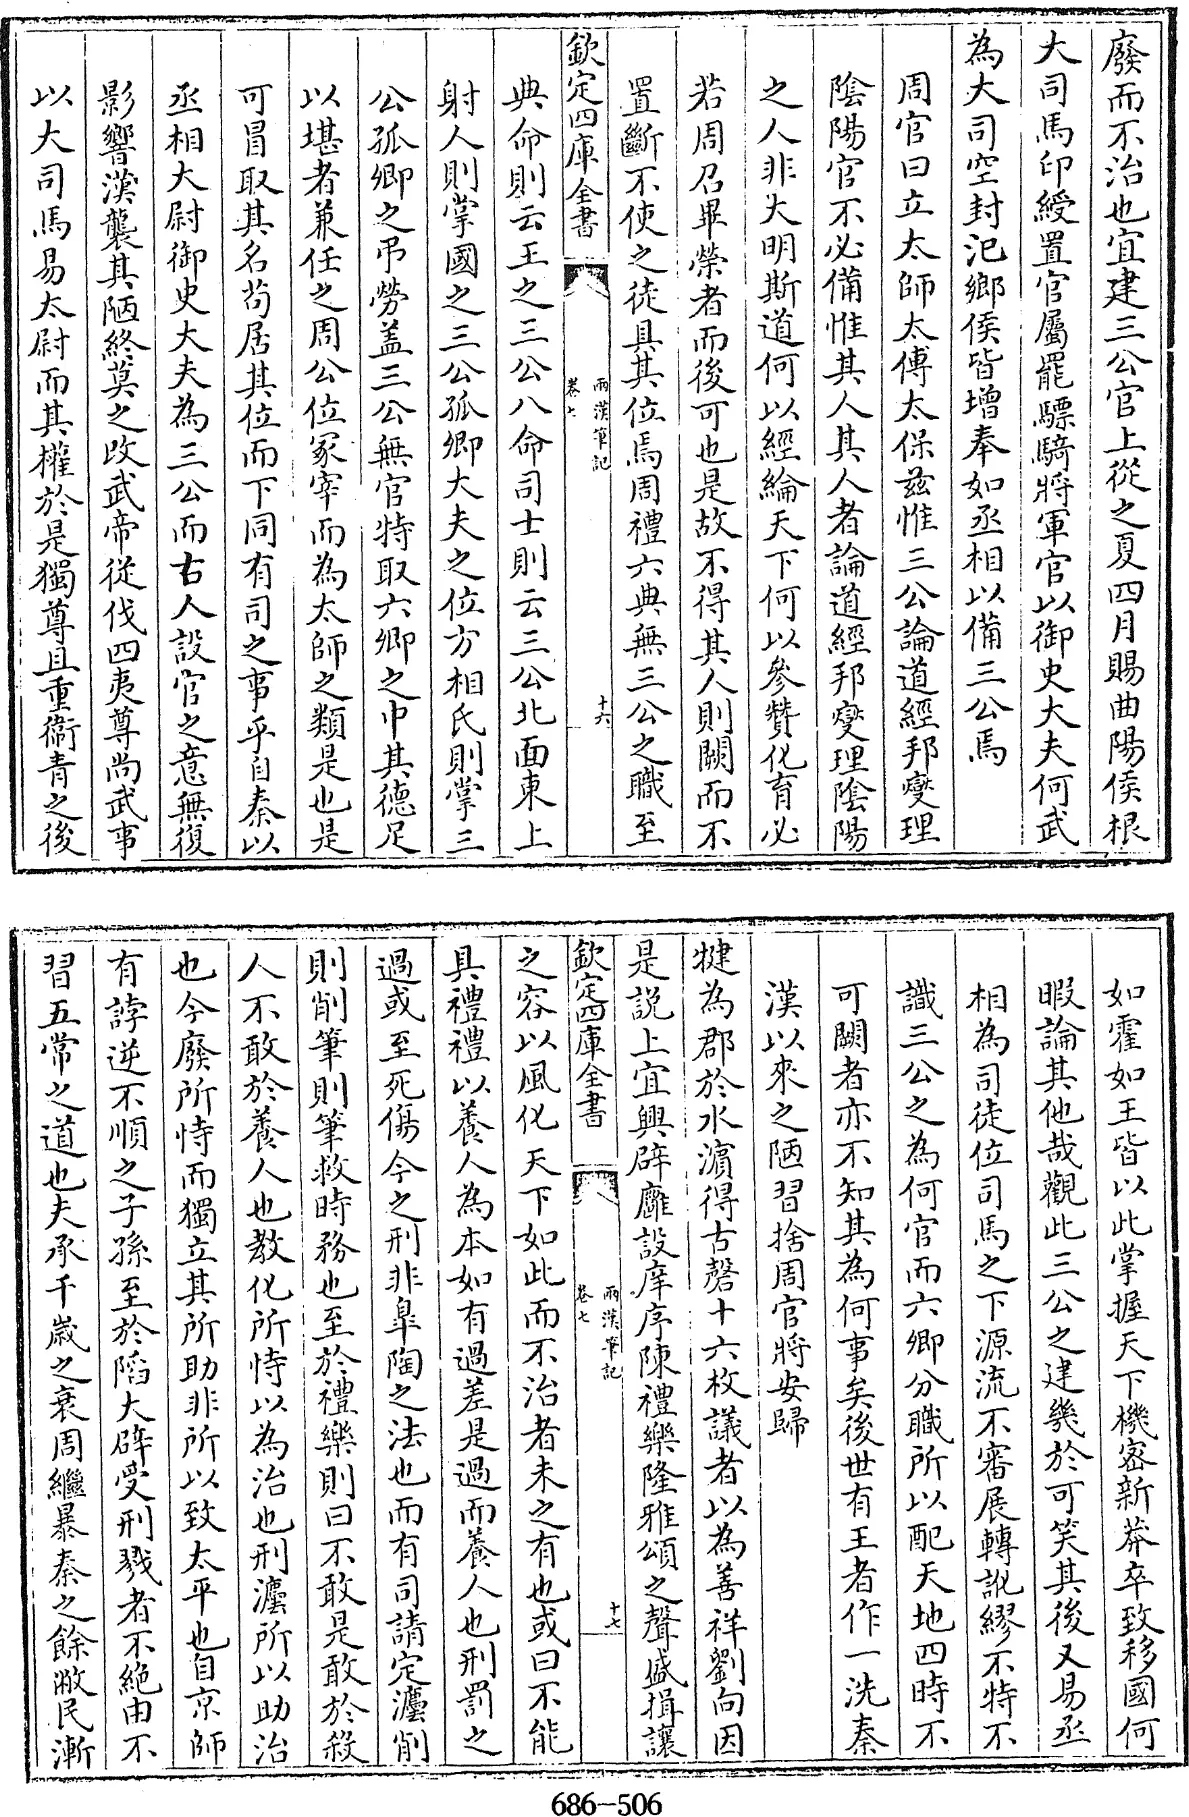 廢而不治也宜建三公官上從之夏四月賜曲陽侯根
大司馬印綬置官屬罷驃騎將軍官以御史大夫何武
為大司空封汜鄉侯皆增奉如丞相以備三公焉
周官曰立太師太傅太保兹惟三公論道經邦燮理
陰陽官不必備惟其人其人者論道經邦燮理陰陽
之人非大明斯道何以經綸天下何以參贊化育必
若周召畢榮者而後可也是故不得其人則闕而不
置斷不使之徒具其位焉周禮六典無三公之職至
欽定四庫全書
兩漢筆記
卷七
十六
典命則云王之三公八命司士則云三公北面東上
射人則掌國之三公孤卿大夫之位方相氏則掌三
公孤卿之弔勞盖三公無官特取六卿之中其德足
以堪者兼任之周公位冢宰而為太師之類是也是
可冒取其名苟居其位而下同有司之事乎自秦以
丞相大尉御史大夫為三公而古人設官之意無復
影響漢襲其陋終莫之改武帝從伐四夷尊尚武事
以大司馬易太尉而其權於是獨尊且重衛青之後
如霍如王皆以此掌握天下機密新莽卒致移國何
暇論其他哉觀此三公之建幾於可笑其後又易丞
相為司徒位司馬之下源流不審展轉訛繆不特不
識三公之為何官而六卿分職所以配天地四時不
可闕者亦不知其為何事矣後世有王者作一洗秦
漢以來之陋習捨周官將安歸
犍為郡於水濵得古磬十六枚議者以為善祥劉向因
是説上宜興辟廱設庠序陳禮樂隆雅頌之聲盛揖讓
欽定四庫全書
兩漢筆記
卷七
十七
之容以風化天下如此而不治者未之有也或曰不能
具禮禮以養人為本如有過差是過而養人也刑罰之
過或至死傷今之刑非臯陶之法也而有司請定灋削
則削筆則筆救時務也至於禮樂則曰不敢是敢於殺
人不敢於養人也教化所恃以為治也刑灋所以助治
也今廢所恃而獨立其所助非所以致太平也自京師
有誖逆不順之子孫至於䧟大辟受刑戮者不絶由不
習五常之道也夫承千歲之衰周繼暴秦之餘敝民漸
686-506